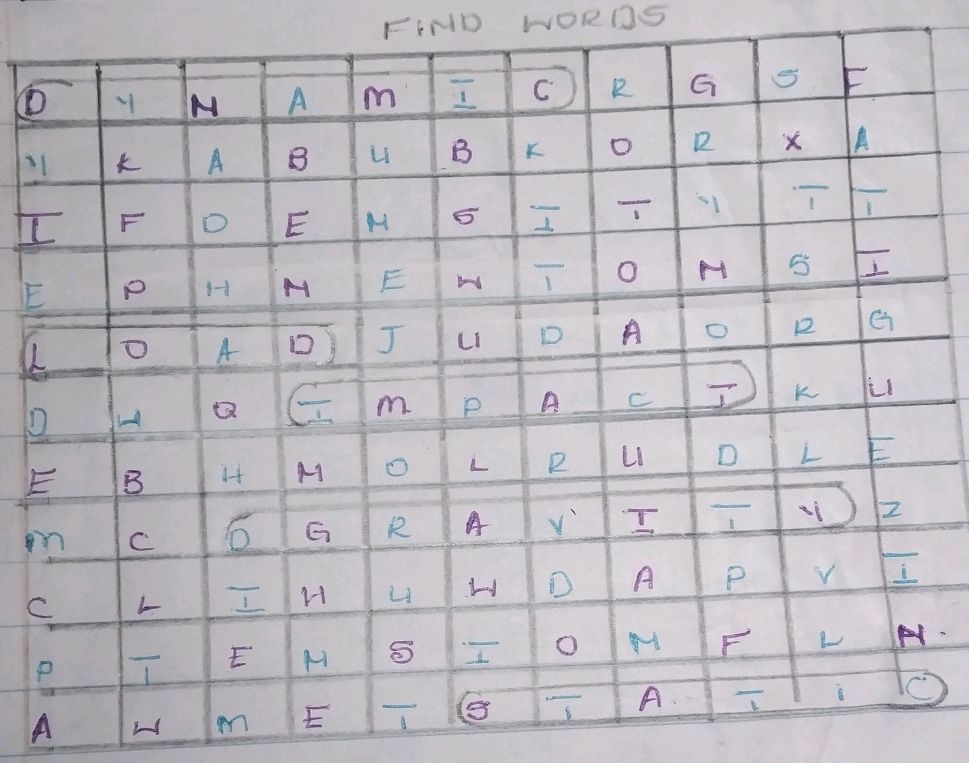 FIND WORDS
D Y N A M I C R G S F
Y K A B U B K O R X A
I F D E N S I T Y T T
E P H N E W T O N S I
L O A D J U D A O R G
D W Q I M P A C T K U
E B H M O L R U D L E
M C O G R A V I T Y Z
C L I H U W D A P V I
P T E N S I O N F L N.
A W M E T S T A. T i C